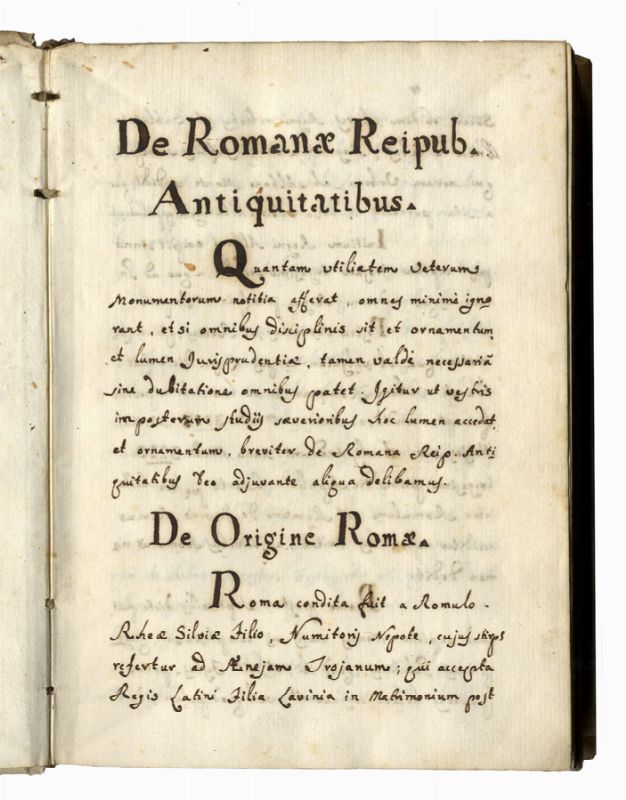 De Romanæ Reipub.
Antiquitatibus.
Quantam utiliatem veterum
Monumentorum notitia afferat, omnes minimè igno
rant, et si omnibus disciplinis sit et ornamentum
et lumen Jurisprudentiæ, tamen valdè necessariā
sine dubitatione omnibus patet. Igitur ut vestris
imposterum studijs sæverioribus hoc lumen accedat
et ornamentum, breviter de Romana Reip. Anti
quitatibus Deo adjuvante aliqua delibamus.
De Origine Romæ.
Roma condita fuit a Romulo.
Rheæ Silviæ Filio, Numitoris Nepote, cujus stirps
refertur ad Ænejam Trojanum; qui accepta
Regis Latini Filia Lavinia in Matrimonium post